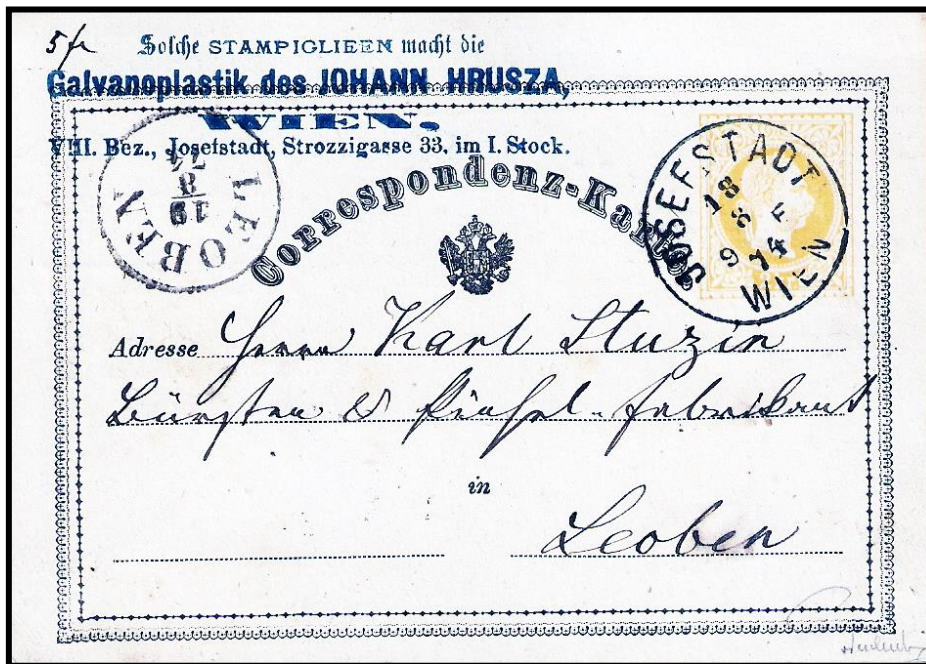 5 fr
Solche STAMPIGLIEEN macht die
Galvanoplastik des JOHANN HRUSZA,
WIEN.
VIII. Bez., Josefstadt, Strozzigasse 33, im I. Stock.
LEOBEN
19
8
74
JOSEFSTADT
18
8 F
9 74
WIEN
Correspondenz-Karte
Adresse Herrn Karl Stuzin
Bürsten & Pinsel-fabrikant
in
Leoben